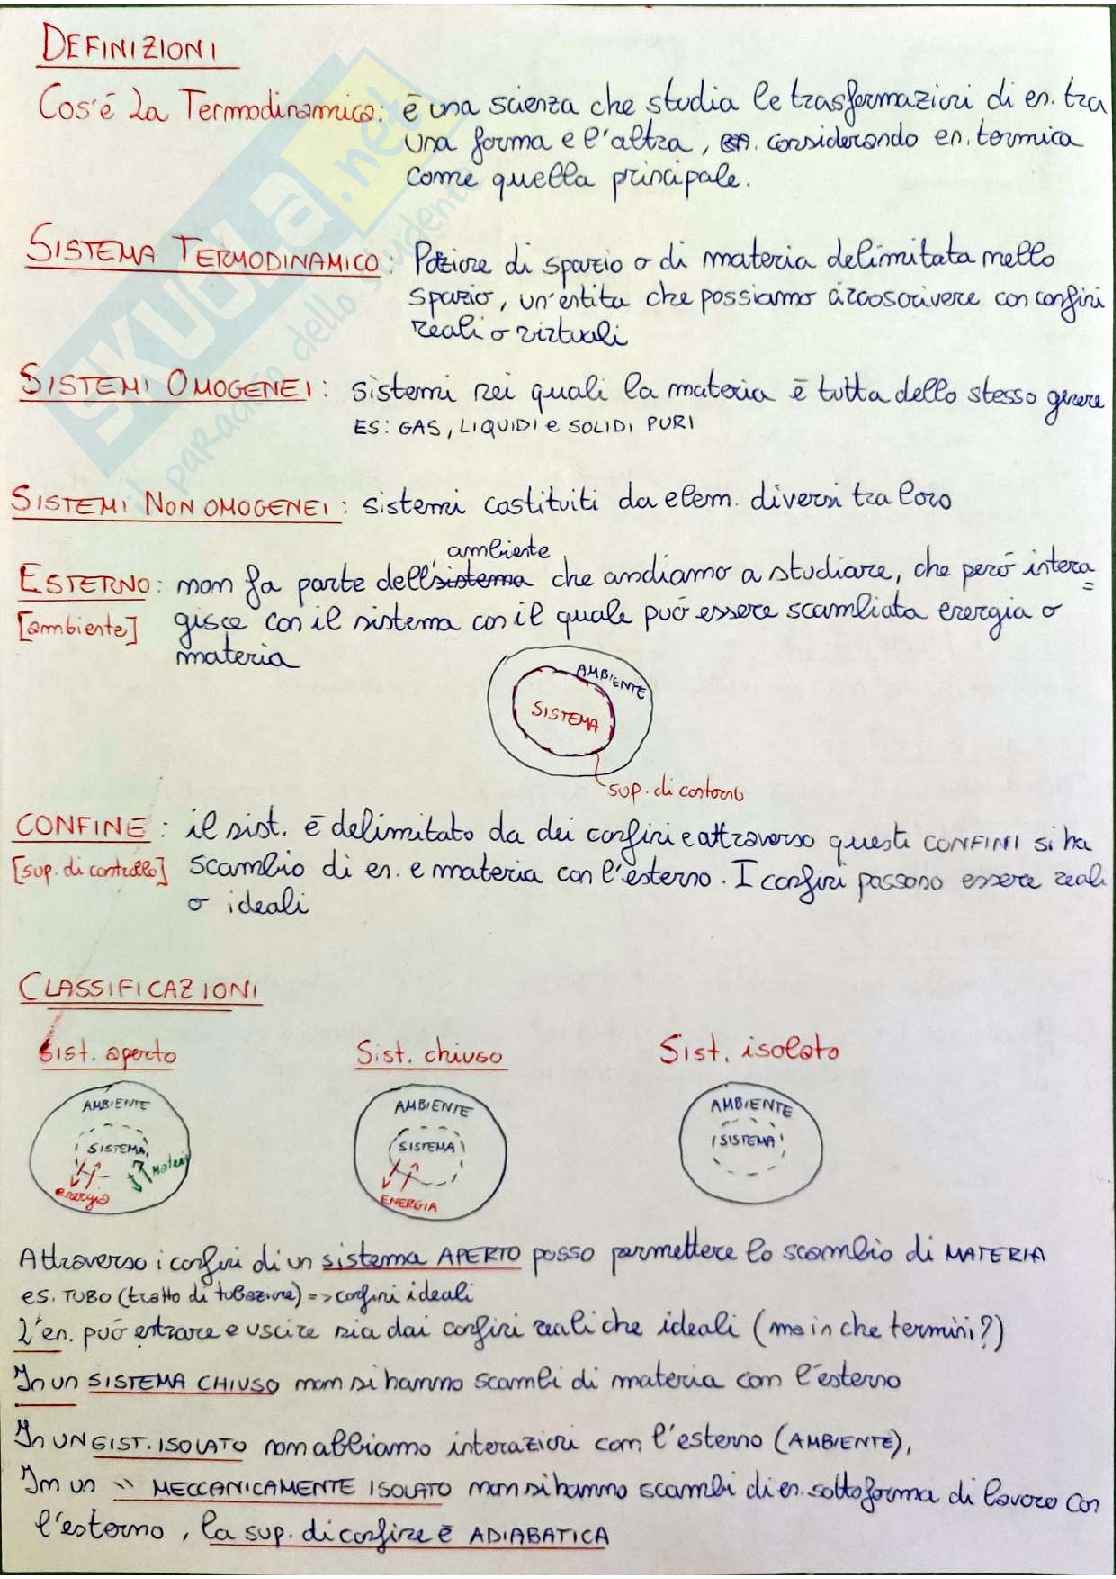 DEFINIZIONI
Cos'é la Termodinamica: é una scienza che studia le trasformazioni di en. tra
una forma e l'altra, considerando en. termica
come quella principale.
SISTEMA TERMODINAMICO: Pozione di spazio o di materia delimitata nello
spazio, un'entita che possiamo circoscrivere con confini
reali o virtuali
SISTEMI OMOGENEI: sistemi nei quali la materia é tutta dello stesso genere
ES: GAS, LIQUIDI e SOLIDI PURI
SISTEMI NON OMOGENEI: sistemi costituiti da elem. diversi tra loro
ambiente
ESTERNO: non fa parte dell'sistema che andiamo a studiare, che peró intera=
[ambiente] gisce con il sistema con il quale puó essere scambiata energia o
materia
AMBIENTE
SISTEMA
sup. di contorno
CONFINE: il sist. é delimitato da dei confini e attraverso questi CONFINI si ha
[sup. di controllo] scambio di en. e materia con l'esterno. I confini possono essere reali
o ideali
CLASSIFICAZIONI
Sist. aperto Sist. chiuso Sist. isolato
AMBIENTE AMBIENTE AMBIENTE
SISTEMA SISTEMA SISTEMA
energia ENERGIA
Attraverso i confini di un sistema APERTO posso permettere lo scambio di MATERIA
es. TUBO (tratto di tubazione) => confini ideali
L'en. puó entrare e uscire sia dai confini reali che ideali (ma in che termini?)
In un SISTEMA CHIUSO non si hanno scambi di materia con l'esterno
In UN SIST. ISOLATO non abbiamo interazioni con l'esterno (AMBIENTE),
In un " MECCANICAMENTE ISOLATO non si hanno scambi di en. sottoforma di lavoro con
l'esterno, la sup. di confine é ADIABATICA
SKUOLA.net
il paradiso dello studente